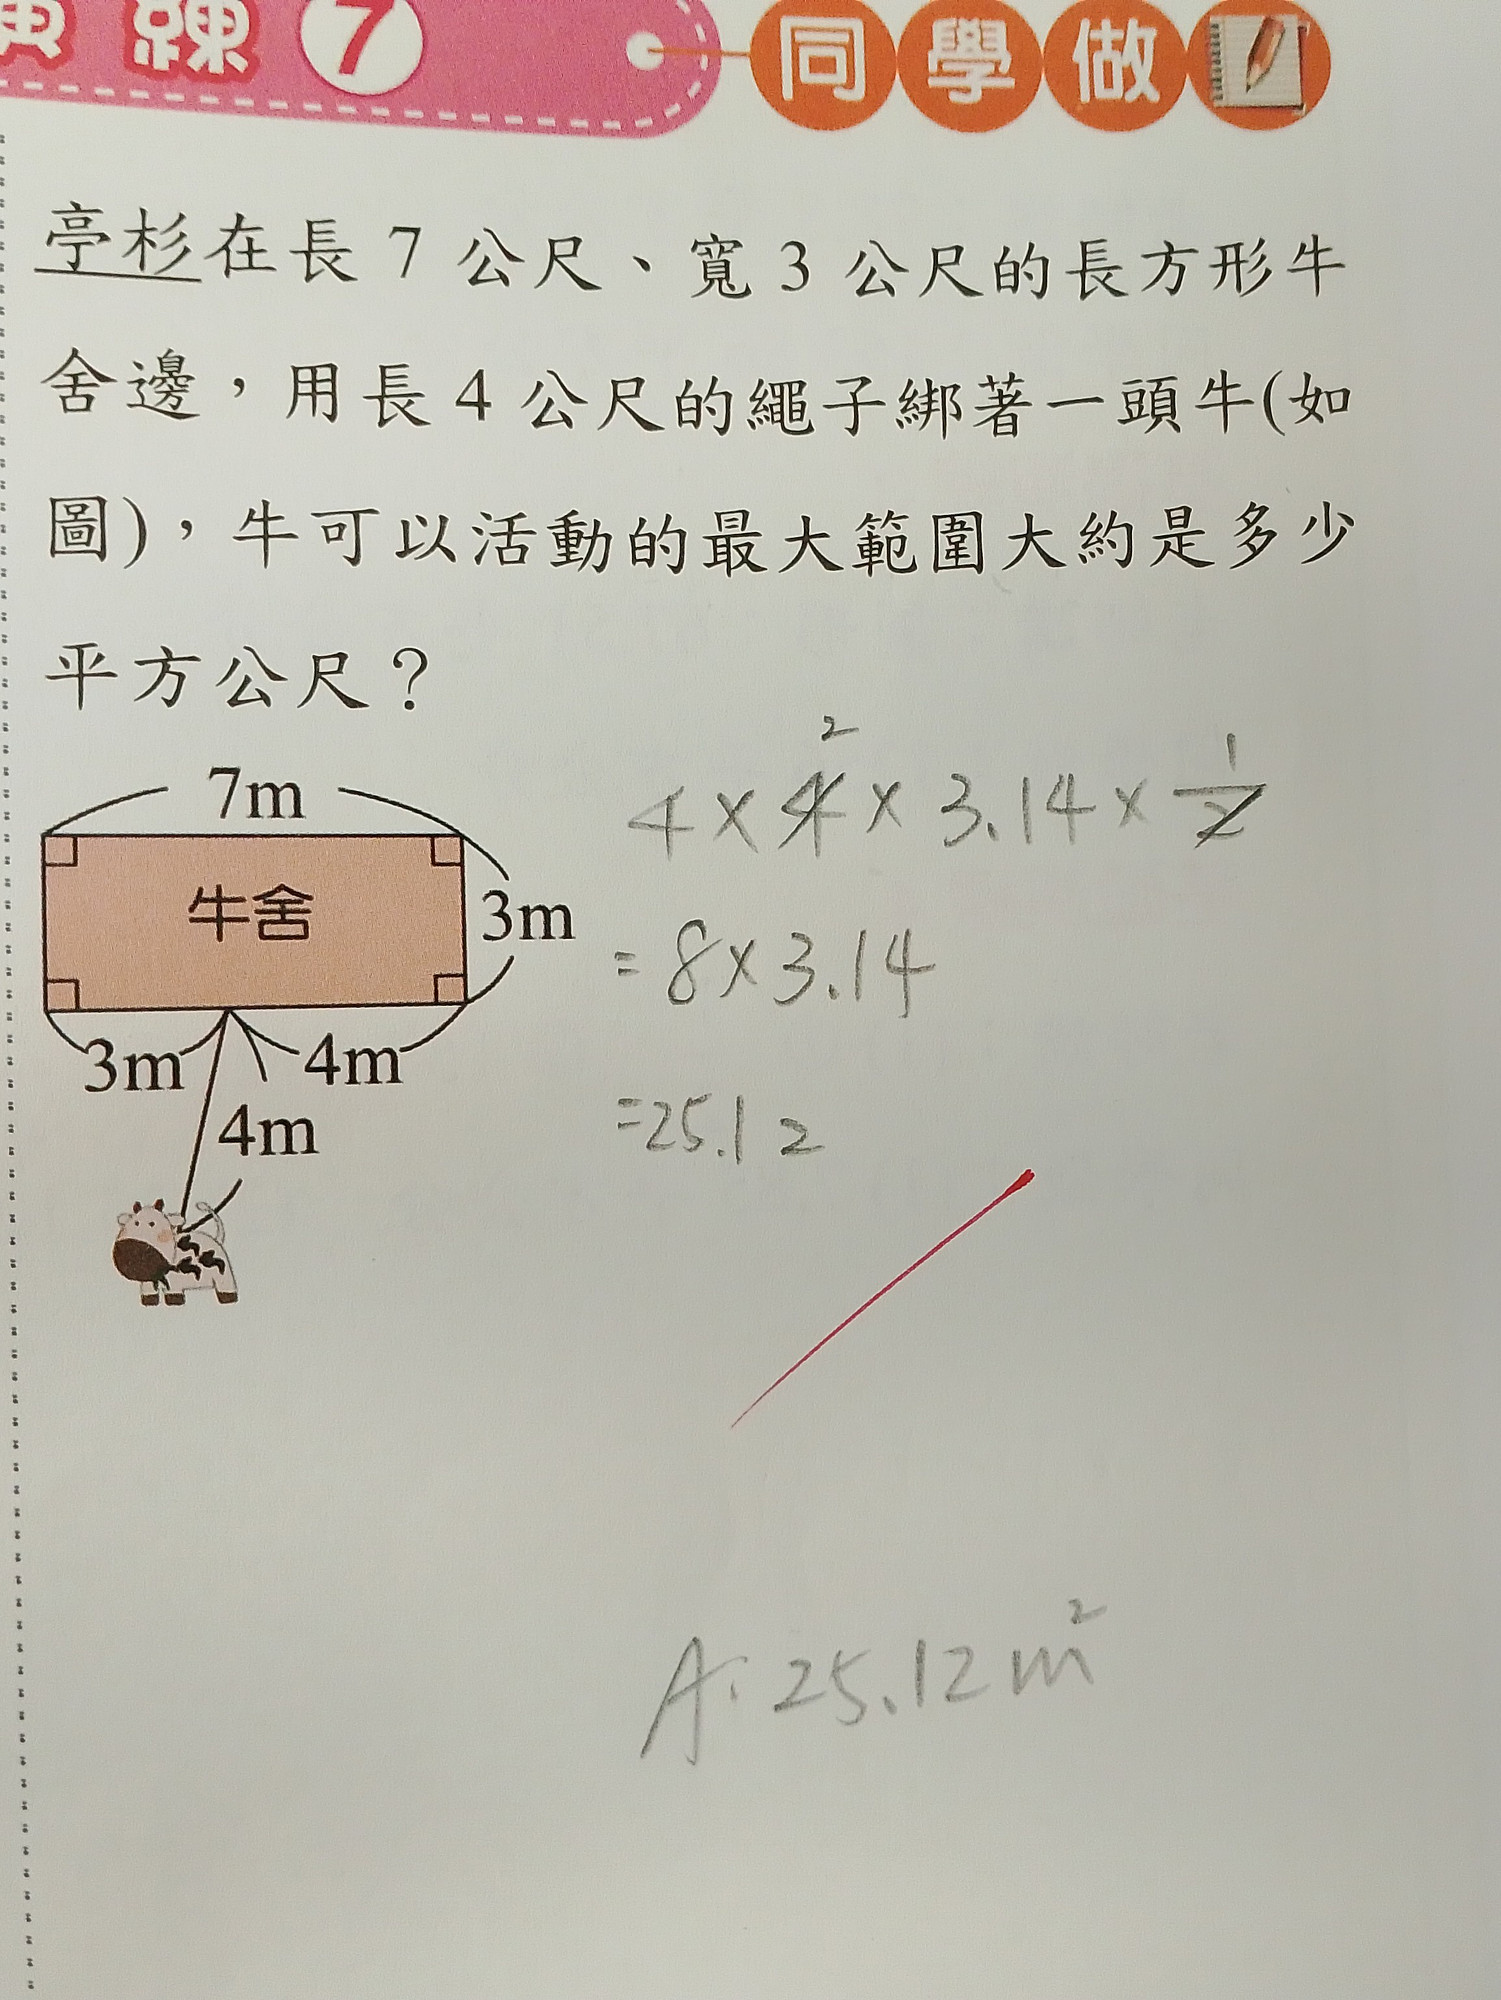 練 7 同學做
亭杉在長 7 公尺、寬 3 公尺的長方形牛
舍邊，用長 4 公尺的繩子綁著一頭牛(如
圖)，牛可以活動的最大範圍大約是多少
平方公尺？
7m
牛舍
3m
3m
4m
4m
2
4×4×3.14×1/2
=8×3.14
=25.12
A: 25.12m²